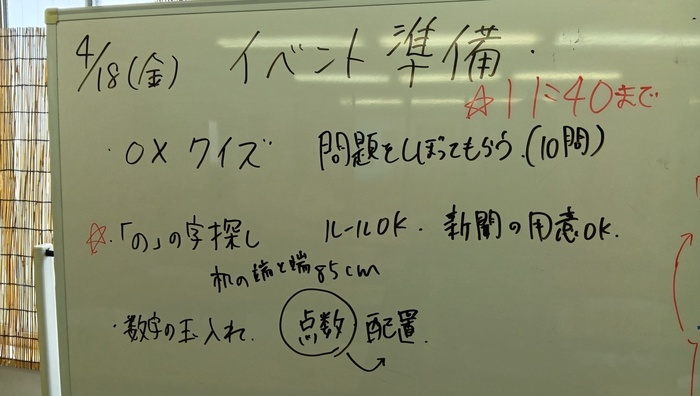 4/18(金) イベント準備.
☆11:40まで
・○×クイズ 問題をしぼってもらう.(10問)
☆・「の」の字探し ルールOK. 新聞の用意OK.
机の端と端85cm
・数字の玉入れ. 点数 配置.